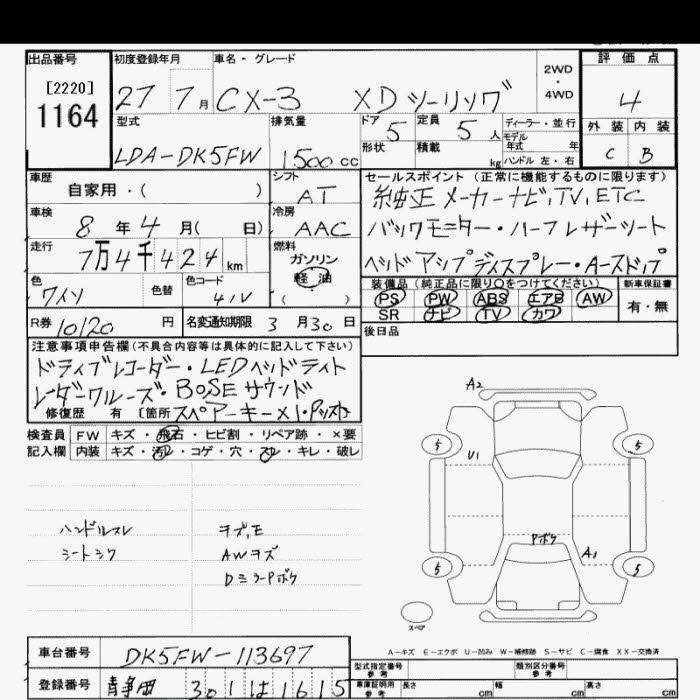 出品番号 初度登録年月 車名・グレード 2WD・4WD 評価点
[2220]
1164
27 7月 CX-3 XDツーリング 4
型式 排気量 ドア 定員 ディーラー・並行
LDA-DK5FW 1500cc 5 5人 モデル年式 年
形状 積載 kg ハンドル 左・右
外装 内装
C B
車歴 シフト セールスポイント(正常に機能するものに限ります)
自家用・( ) AT 純正メーカーナビ,TV,ETC
車検 冷房 バックモニター・ハーフレザーシート
8年4月( 日) AAC ヘッドアップディスプレー・Aーストップ
走行 燃料
7万4千424km ガソリン
軽油
( )
色 色替 色コード 装備品(純正品に限り○をつけてください) 新車保証書
ワイン 41V PS PW ABS エアB AW 有・無
SR ナビ TV カワ
R券 10120円 名変通知期限 3月30日 後日品
注意事項申告欄(不具合内容等は具体的に記入して下さい)
ドライブレコーダー・LEDヘッドライト
レーダークルーズ・BOSEサウンド
修復歴 有 〔箇所 スペアーキー×1・
検査員 FW キズ・飛石・ヒビ割・リペア跡・×要
記入欄 内装 キズ・汚れ・コゲ・穴・スレ・キレ・破レ
ハンドルスレ キズ,E
シートシワ AWキズ
Dミラーボケ
A2
5 5
U1
Pボケ A1
5 5
スペア
A-キズ E-エクボ U-凹み W-補修跡 S-サビ C-腐食 XX-交換済
車台番号 DK5FW-113697
登録番号 静岡 301 は 1615
型式指定番号 参考 類別区分番号 参考
車庫証明用 参考 長さ cm 幅 cm 高さ cm